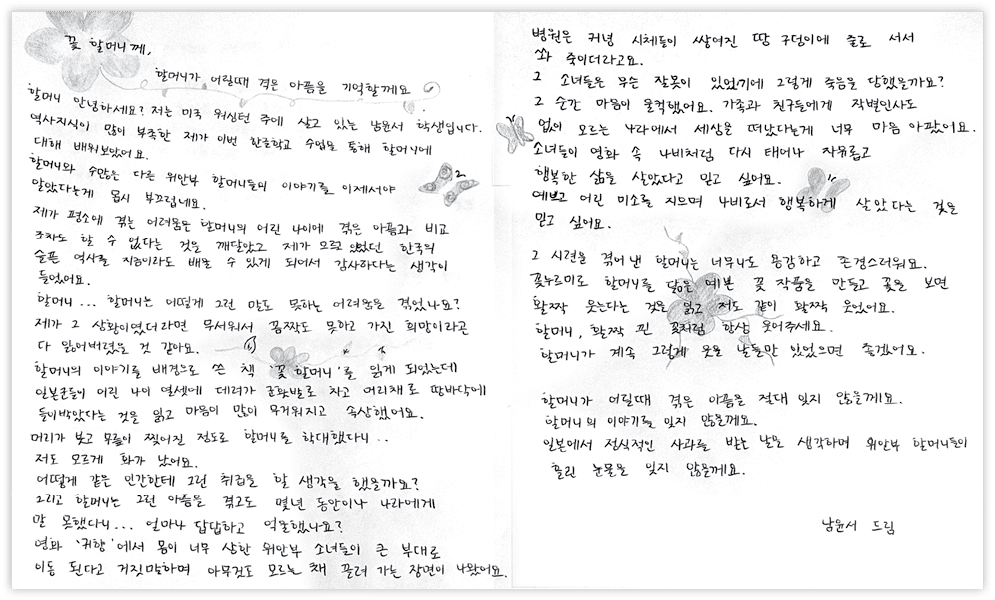 꽃 할머니께,
할머니가 어릴때 겪은 아픔을 기억할께요
할머니 안녕하세요? 저는 미국 워싱턴 주에 살고 있는 남윤서 학생입니다.
역사지식이 많이 부족한 제가 이번 한글학교 수업을 통해 할머니에
대해 배워보았어요.
할머니와 수많은 다른 위안부 할머니들의 이야기를 이제서야
알았다는게 몹시 부끄럽네요.
제가 평소에 겪는 어려움은 할머니의 어린 나이에 겪은 아픔과 비교
조차도 할 수 없다는 것을 깨달았고 제가 모르고 있었던 한국의
슬픈 역사를 지금이라도 배울 수 있게 되어서 감사하다는 생각이
들었어요.
할머니... 할머니는 어떻게 그런 말도 못하는 어려움을 겪었나요?
제가 그 상황이였더라면 무서워서 꼼짝도 못하고 가진 희망이라곤
다 잃어버렸을 것 같아요.
할머니의 이야기를 배경으로 쓴 책 '꽃 할머니'를 읽게 되었는데
일본군들이 어린 나이 열셋에 데려가 군홧발로 차고 머리채로 땅바닥에
들이박았다는 것을 읽고 마음이 많이 무거워지고 속상했어요.
머리가 붓고 무릎이 찢어진 정도로 할머니를 학대했다니..
저도 모르게 화가 났어요.
어떻게 같은 인간한테 그런 취급을 할 생각을 했을까요?
그리고 할머니는 그런 아픔을 겪고도 몇년 동안이나 나라에게
말 못했다니... 얼마나 답답하고 억울했나요?
영화 '귀향'에서 몸이 너무 상한 위안부 소녀들이 큰 부대로
이동 된다고 거짓말하며 아무것도 모르는 채 끌려 가는 장면이 나왔어요.
병원은 커녕 시체들이 쌓여진 땅 구덩이에 줄로 서서
쏴 죽이더라고요.
그 소녀들은 무슨 잘못이 있었기에 그렇게 죽음을 당했을까요?
그 순간 마음이 울컥했어요. 가족과 친구들에게 작별인사도
없이 모르는 나라에서 세상을 떠났다는게 너무 마음 아팠어요.
소녀들이 영화 속 나비처럼 다시 태어나 자유롭고
행복한 삶을 살았다고 믿고 싶어요.
예쁘고 어린 미소를 지으며 나비로서 행복하게 살았다는 것을
믿고 싶어요.
그 시련을 겪어 낸 할머니는 너무나도 용감하고 존경스러워요.
꽃누르미로 할머니를 닮은 예쁜 꽃 작품을 만들고 꽃을 보면
활짝 웃는다는 것을 읽고 저도 같이 활짝 웃었어요.
할머니, 활짝 핀 꽃처럼 항상 웃어주세요.
할머니가 계속 그렇게 웃을 날들만 있었으면 좋겠어요.
할머니가 어릴때 겪은 아픔을 절대 잊지 않을께요.
할머니의 이야기를 잊지 않을께요.
일본에서 정식적인 사과를 받는 날을 생각하며 위안부 할머니들이
흘린 눈물을 잊지 않을께요.
남윤서 드림